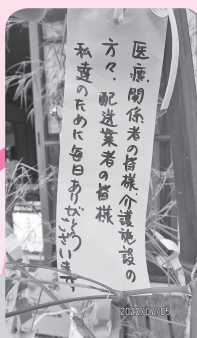 医療関係者の皆様、介護施設の
方々、配送業者の皆様
私達のために毎日ありがとう
ございます。
2020/07/05